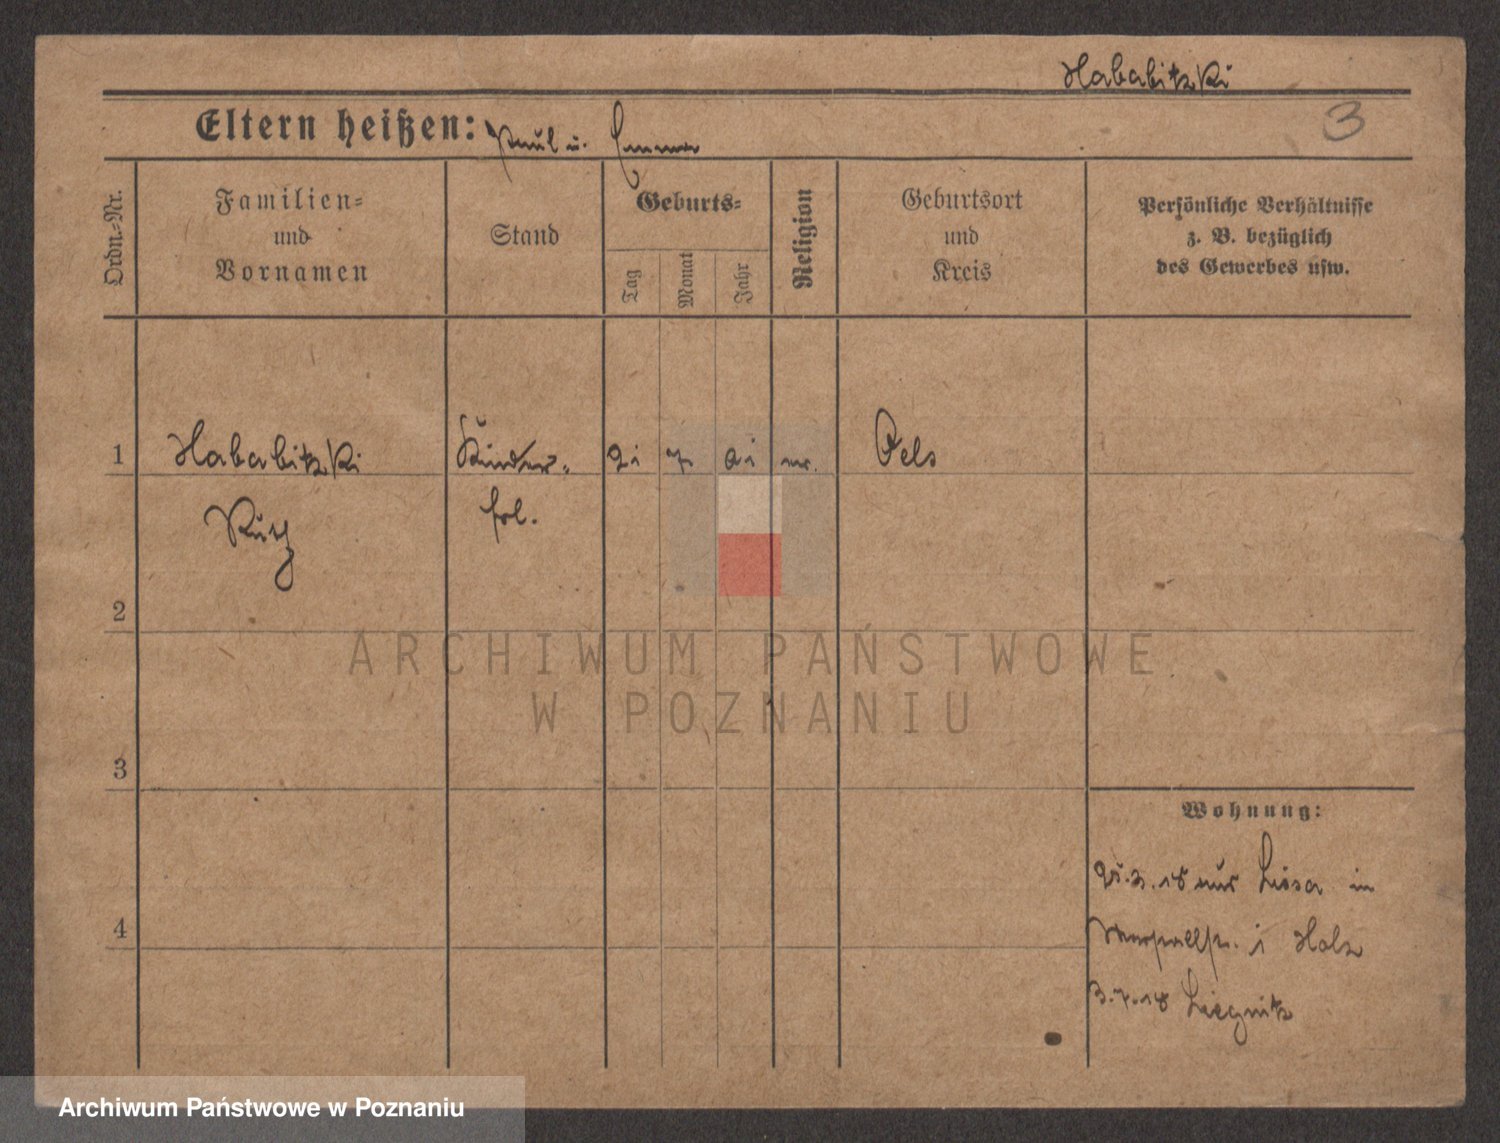 Hababitzki
3
Eltern heißen: Paul u. Emma
Ordn.-Nr.
Familien-
und
Vornamen
Stand
Geburts-
Tag
Monat
Jahr
Religion
Geburtsort
und
Kreis
Persönliche Verhältnisse
z. B. bezüglich
des Gewerbes usw.
1 Hababitzki Kinder- 21 7 01 Oels
frl.
2
ARCHIWUM PAŃSTWOWE
W POZNANIU
3
Wohnung:
25.3.18 aus Lissa in
4 1 Holz
3.7.18 Liegnitz
Archiwum Państwowe w Poznaniu